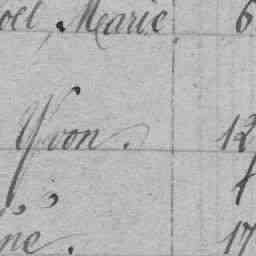 oel, Marie 6
Yvon. 12
ne. 17